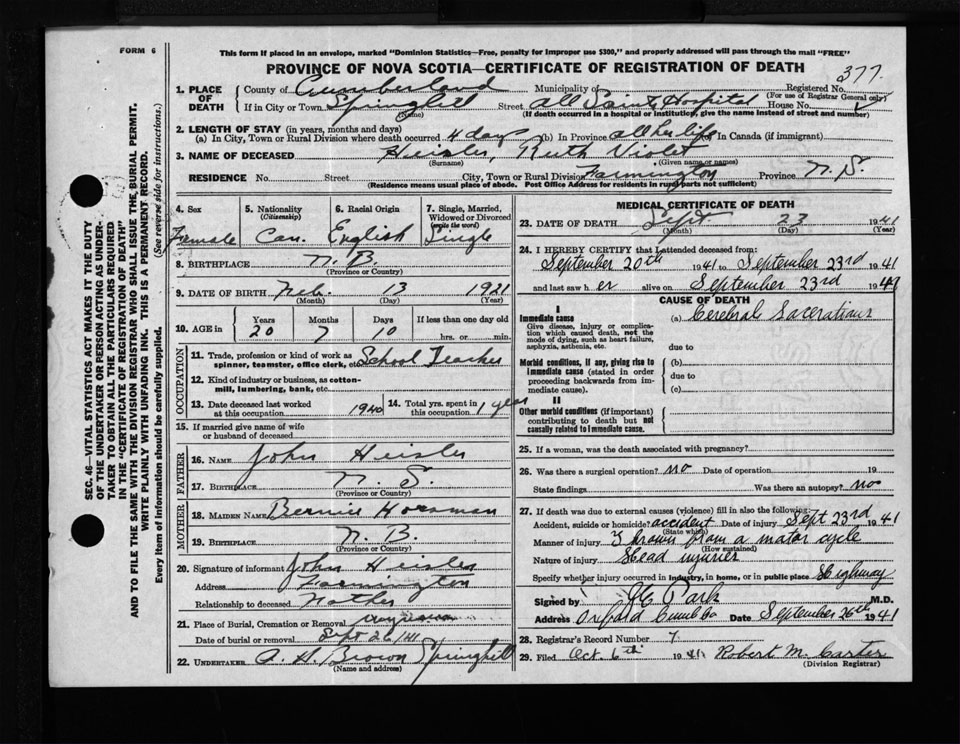 FORM 6
This form if placed in an envelope, marked "Dominion Statistics—Free, penalty for improper use $300," and properly addressed will pass through the mail "FREE"
PROVINCE OF NOVA SCOTIA—CERTIFICATE OF REGISTRATION OF DEATH
377.
SEC. 46—VITAL STATISTICS ACT MAKES IT THE DUTY
OF THE UNDERTAKER OR PERSON ACTING AS UNDER-
TAKER TO OBTAIN ALL THE PARTICULARS REQUIRED
IN THE "CERTIFICATE OF REGISTRATION OF DEATH"
AND TO FILE THE SAME WITH THE DIVISION REGISTRAR WHO SHALL ISSUE THE BURIAL PERMIT.
WRITE PLAINLY WITH UNFADING INK. THIS IS A PERMANENT RECORD.
Every item of information should be carefully supplied. (See reverse side for instructions.)
1. PLACE OF DEATH
County of Cumberland Municipality of Registered No.
(For use of Registrar General only)
If in City or Town Springhill Street All Saints Hospital House No.
(Name) (If death occurred in a hospital or institution, give the name instead of street and number)
2. LENGTH OF STAY (in years, months and days)
(a) In City, Town or Rural Division where death occurred 4 days (b) In Province all her life In Canada (if immigrant)
3. NAME OF DECEASED Heisler, Ruth Violet
(Surname) (Given name or names)
RESIDENCE No. Street City, Town or Rural Division Farmington Province N. S.
(Residence means usual place of abode. Post Office Address for residents in rural parts not sufficient)
4. Sex Female
5. Nationality (Citizenship) Can.
6. Racial Origin English
7. Single, Married, Widowed or Divorced (write the word) Single
8. BIRTHPLACE N. B.
(Province or Country)
9. DATE OF BIRTH Feb. 13 1921
(Month) (Day) (Year)
10. AGE in Years Months Days If less than one day old
20 7 10 hrs. or min.
OCCUPATION
11. Trade, profession or kind of work as School Teacher
spinner, teamster, office clerk, etc.
12. Kind of industry or business, as cotton-
mill, lumbering, bank, etc.
13. Date deceased last worked
at this occupation 1940
14. Total yrs. spent in
this occupation 1 year
15. If married give name of wife
or husband of deceased
FATHER
16. NAME John Heisler
17. BIRTHPLACE N. S.
(Province or Country)
MOTHER
18. MAIDEN NAME Bernice Horsman
19. BIRTHPLACE N. B.
(Province or Country)
20. Signature of informant John Heisler
Address Farmington
Relationship to deceased Father
21. Place of Burial, Cremation or Removal
Date of burial or removal Sept 26/41
22. UNDERTAKER A. H. Brown Springhill
(Name and address)
MEDICAL CERTIFICATE OF DEATH
23. DATE OF DEATH Sept. 23 1941
(Month) (Day) (Year)
24. I HEREBY CERTIFY that I attended deceased from:
September 20th 1941 to September 23rd 1941
and last saw her alive on September 23rd 1941
CAUSE OF DEATH
I
Immediate cause (a) Cerebral Lacerations
Give disease, injury or complica-
tion which caused death, not the
mode of dying, such as heart failure,
asphyxia, asthenia, etc.
due to
Morbid conditions, if any, giving rise to
immediate cause (stated in order
proceeding backwards from im-
mediate cause).
(b)
due to
(c)
II
Other morbid conditions (if important)
contributing to death but not
causally related to immediate cause.
25. If a woman, was the death associated with pregnancy?
26. Was there a surgical operation? no Date of operation 19
State findings Was there an autopsy? no
27. If death was due to external causes (violence) fill in also the following:
Accident, suicide or homicide? accident Date of injury Sept 23rd 1941
(State which)
Manner of injury Thrown from a motor cycle
(How sustained)
Nature of injury Head injuries
Specify whether injury occurred in industry, in home, or in public place Highway
Signed by Park M.D.
Address Oxford Cumb Co Date September 26th 1941
28. Registrar's Record Number 7
29. Filed Oct 6th 1941 Robert M. Carter
(Division Registrar)